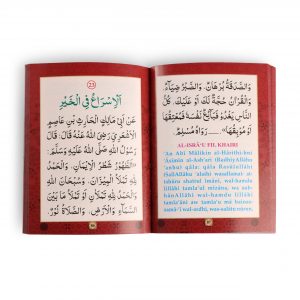 23
اَلْإِسْرَاعُ فِي الْخَيْرِ
عَنْ أَبِيْ مَالِكٍ الْحَارِثِ بْنِ عَاصِمٍ
الْأَشْعَرِيِّ رَضِيَ اللهُ عَنْهُ قَالَ: قَالَ
رَسُوْلُ اللهِ صَلَّى اللهُ عَلَيْهِ وَسَلَّمَ:
«اَلطُّهُوْرُ شَطْرُ الْإِيْمَانِ، وَالْحَمْدُ
لِلّٰهِ تَمْلَأُ الْمِيْزَانَ، وَسُبْحَانَ اللهِ
وَالْحَمْدُ لِلّٰهِ تَمْلَآنِ أَوْ تَمْلَأُ مَا بَيْنَ
السَّمَاءِ وَالْأَرْضِ، وَالصَّلَاةُ نُوْرٌ،
وَالصَّدَقَةُ بُرْهَانٌ، وَالصَّبْرُ ضِيَاءٌ،
وَالْقُرْآنُ حُجَّةٌ لَكَ أَوْ عَلَيْكَ، كُلُّ
النَّاسِ يَغْدُوْ فَبَائِعٌ نَفْسَهُ فَمُعْتِقُهَا
أَوْ مُوْبِقُهَا» .... رَوَاهُ مُسْلِمٌ.
AL-ISRÂ'U FIL KHAIRI
'An Abî Mâlikin al-Hâritsi-bni
'Âsimin al-Asy'arî (Radhiyallâhu
'anhu) qâla: qâla Rasûlullâhi
(Sallallâhu 'alaihi wasallama): at-
tuhûru shatrul îmâni, wal-hamdu
lillâhi tamla'ul mîzâna, wa sub-
hânAllâhi wal-hamdu lillâhi